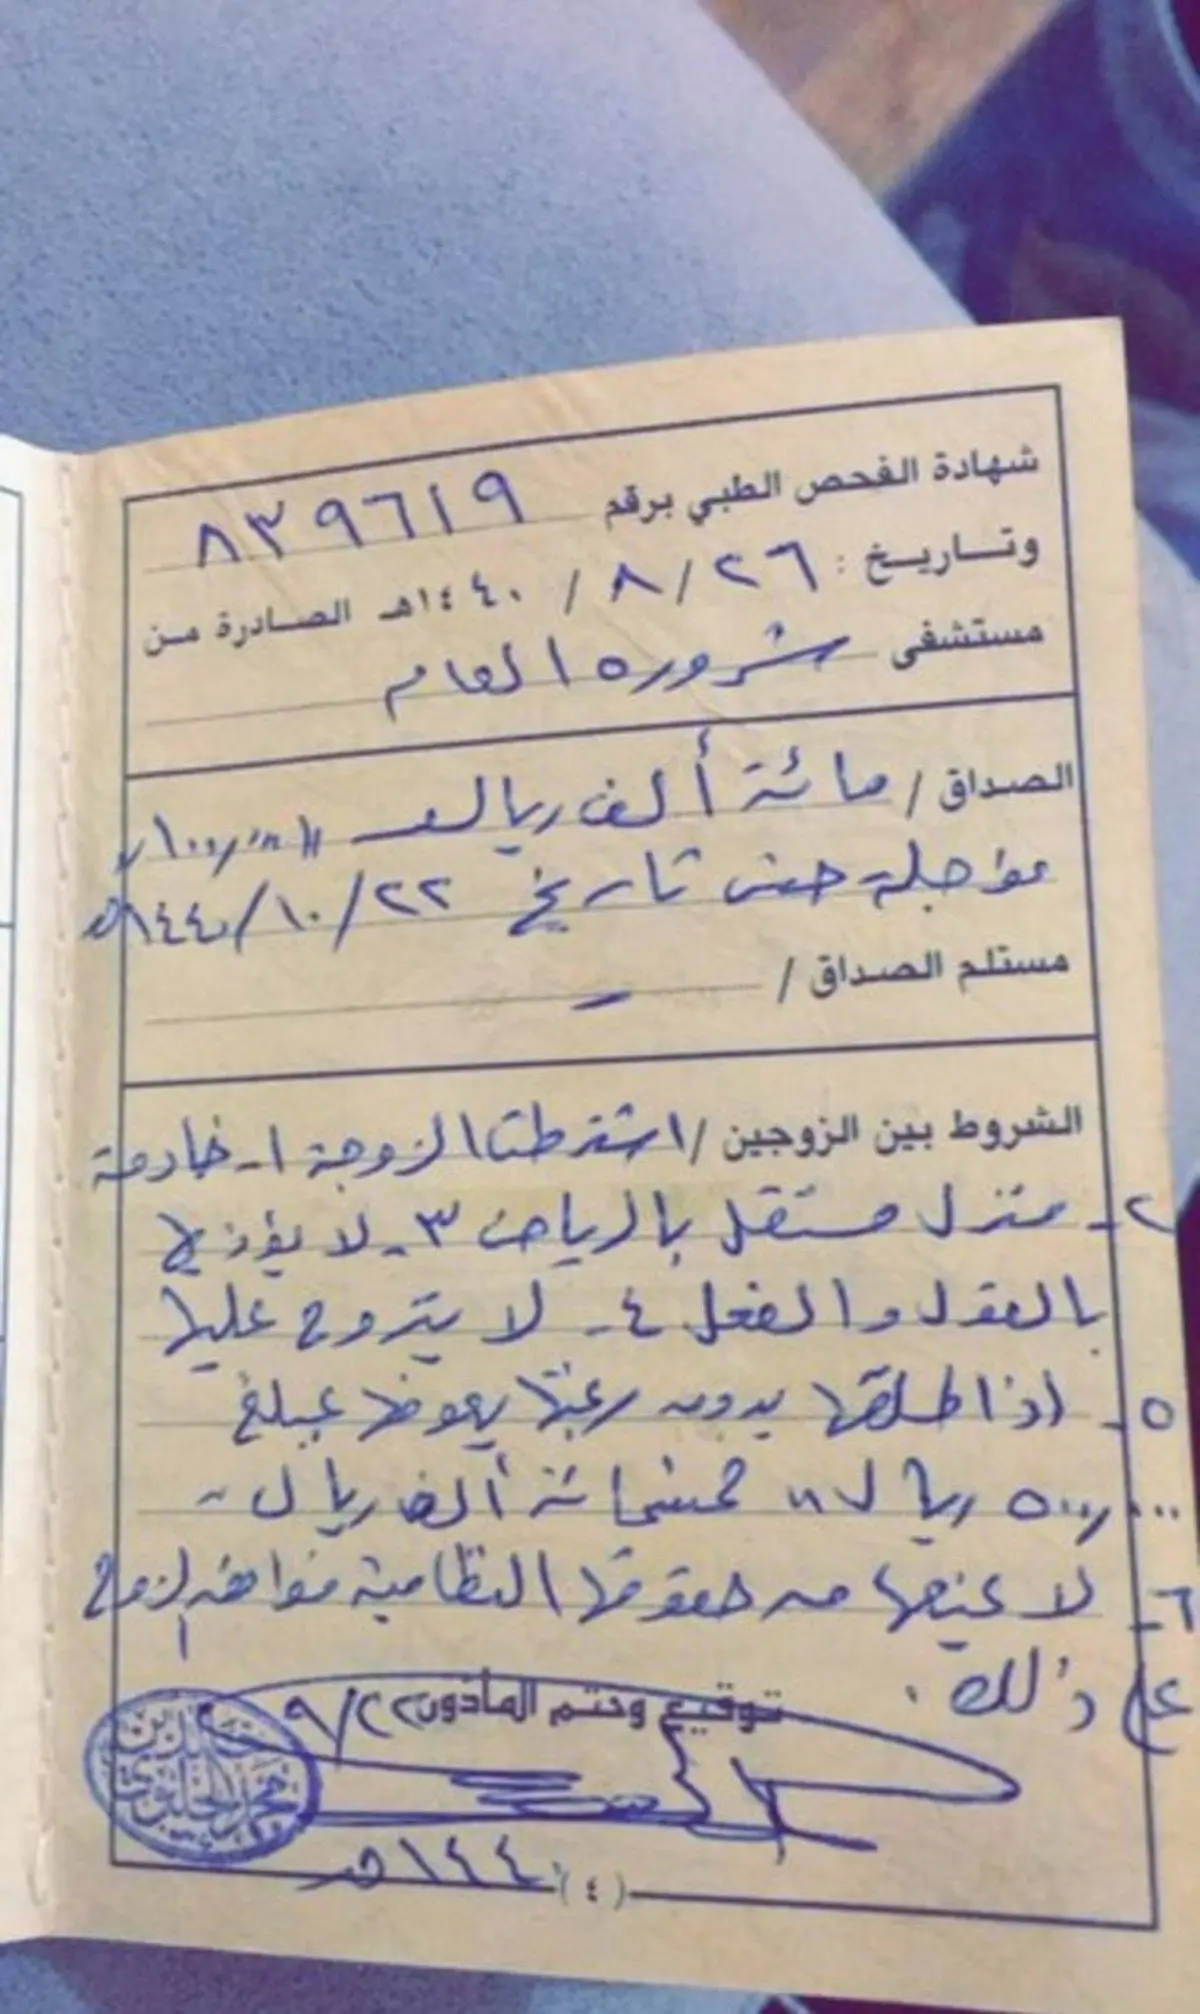 شهادة الفحص الطبي برقم ٨٣٩٦١٩
وتاريخ : ٢٦ / ٨ / ١٤٤٠هـ الصادرة من
مستشفى شروره العام
الصداق / مائة ألف ريال ١٠٠,٠٠٠
مؤجلة حتى تاريخ ٢٢/١٠/١٤٤٠هـ
مستلم الصداق / -
الشروط بين الزوجين / اشترطت الزوجة ١- خادمة
٢- منزل مستقل بالرياض ٣- لا يؤذيها
بالقول والفعل ٤- لا يتزوج عليها
٥- اذا طلقها بدون رغبتها يعوضها بمبلغ
٥٠٠,٠٠٠ ريال " خمسمائة ألف ريال "
٦- لا يمنعها من حقوقها النظامية فوافق الزوج
على ذلك .
توقيع وختم المأذون ٢٢/٩
١٤٤٠هـ
(٤)